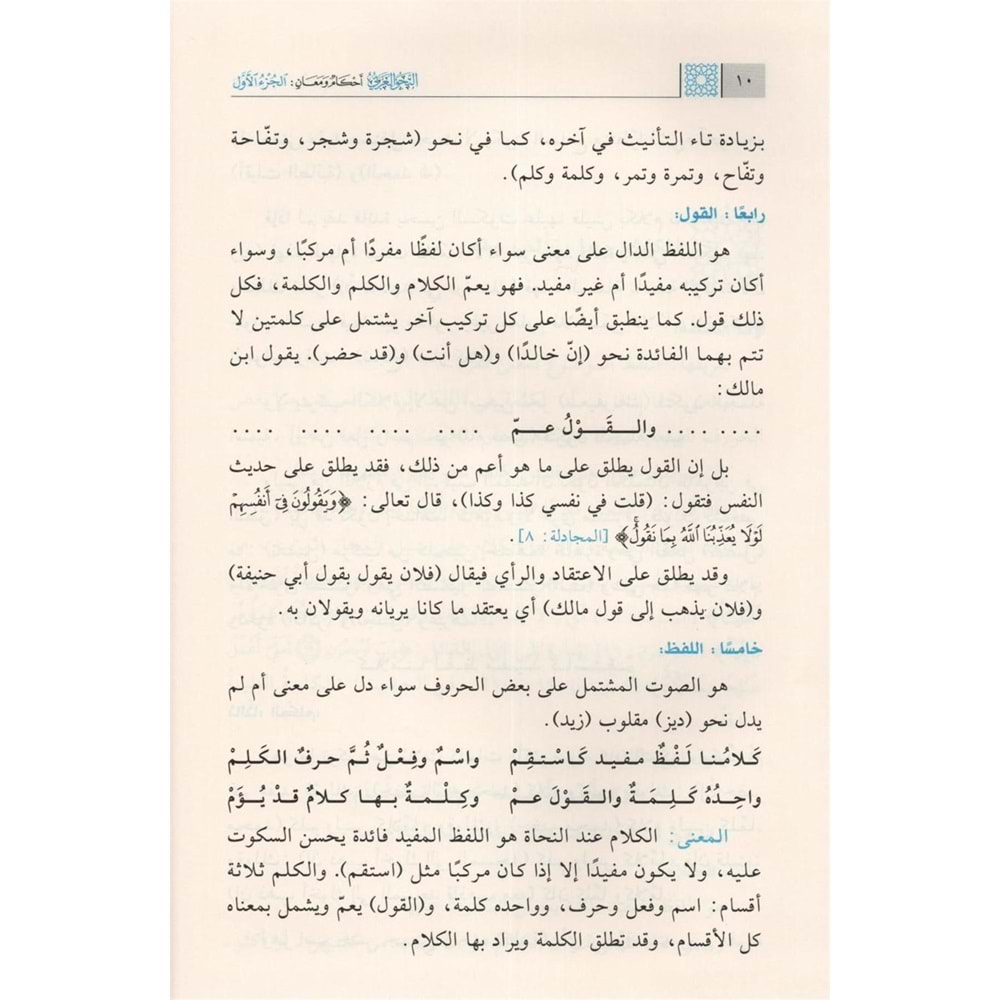 ١٠ النحو العربي أحكام ومعان: الجزء الأول
بزيادة تاء التأنيث في آخره، كما في نحو (شجرة وشجر، وتفّاحة
وتفّاح، وتمرة وتمر، وكلمة وكلم).
رابعًا: القول:
هو اللفظ الدال على معنى سواء أكان لفظًا مفردًا أم مركبًا، وسواء
أكان تركيبه مفيدًا أم غير مفيد. فهو يعمّ الكلام والكلم والكلمة، فكل
ذلك قول. كما ينطبق أيضًا على كل تركيب آخر يشتمل على كلمتين لا
تتم بهما الفائدة نحو (إنّ خالدًا) و(هل أنت) و(قد حضر). يقول ابن
مالك:
.... .... والقَوْلُ عمّ .... .... .... ....
بل إن القول يطلق على ما هو أعم من ذلك، فقد يطلق على حديث
النفس فتقول: (قلت في نفسي كذا وكذا)، قال تعالى: ﴿وَيَقُولُونَ فِيٓ أَنفُسِهِمۡ
لَوۡلَا يُعَذِّبُنَا ٱللَّهُ بِمَا نَقُولُۚ﴾ [المجادلة: ٨].
وقد يطلق على الاعتقاد والرأي فيقال (فلان يقول بقول أبي حنيفة)
و(فلان يذهب إلى قول مالك) أي يعتقد ما كانا يريانه ويقولان به.
خامسًا: اللفظ:
هو الصوت المشتمل على بعض الحروف سواء دل على معنى أم لم
يدل نحو (ديز) مقلوب (زيد).
كلامُنا لَفْظٌ مفيد كاستقِمْ واسْمٌ وفِعْلٌ ثُمَّ حرفٌ الكَلِمْ
واحِدُهُ كَلِمَةٌ والقَوْلَ عمْ وكِلْمةٌ بها كلامٌ قدْ يُؤَمْ
المعنى: الكلام عند النحاة هو اللفظ المفيد فائدة يحسن السكوت
عليه، ولا يكون مفيدًا إلا إذا كان مركبًا مثل (استقم). والكلم ثلاثة
أقسام: اسم وفعل وحرف، وواحده كلمة، و(القول) يعمّ ويشمل بمعناه
كل الأقسام، وقد تطلق الكلمة ويراد بها الكلام.